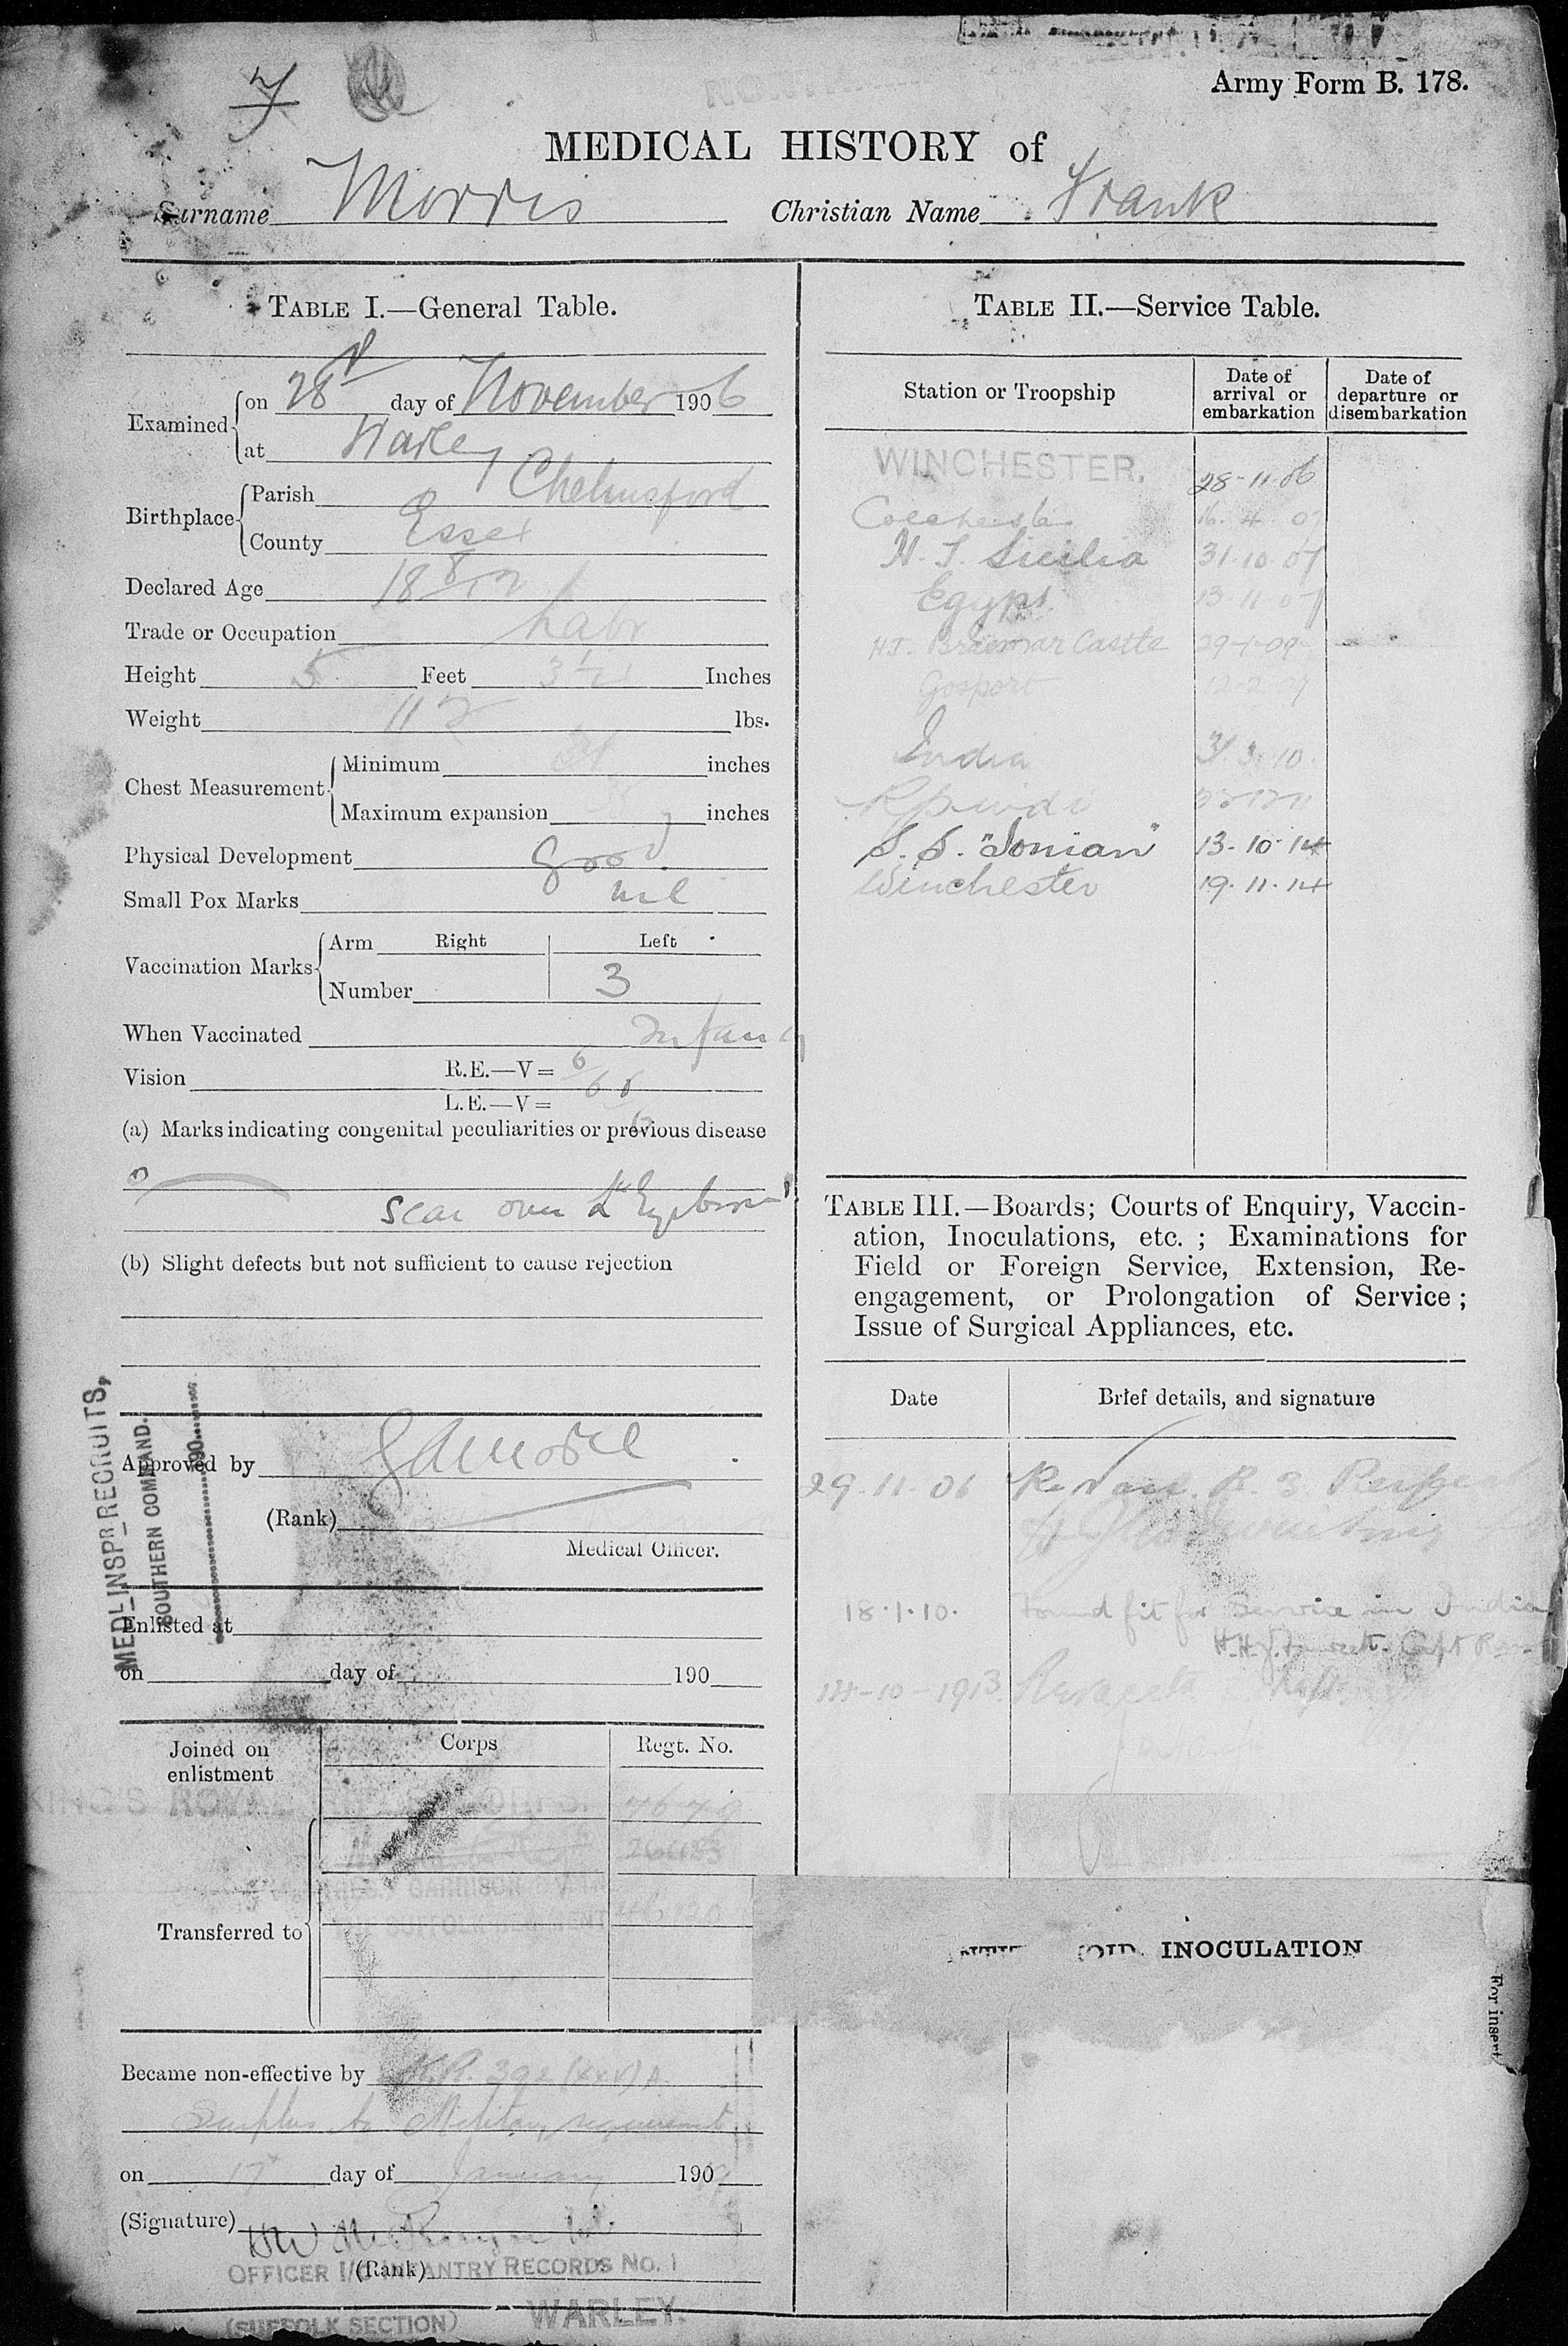 Army Form B. 178.
MEDICAL HISTORY of
Surname Morris Christian Name Frank
TABLE I.—General Table.
Examined on 28 day of November 1906
at Warley
Birthplace Parish Chelmsford
County Essex
Declared Age 18 8/12
Trade or Occupation Labr
Height 5 Feet 3 1/2 Inches
Weight 112 lbs.
Chest Measurement Minimum inches
Maximum expansion inches
Physical Development good
Small Pox Marks nil
Vaccination Marks Arm Right Left
Number 3
When Vaccinated Infancy
Vision R.E.—V= 6/6
L.E.—V= 6/6
(a) Marks indicating congenital peculiarities or previous disease
Scar over Lt Eyebrow
(b) Slight defects but not sufficient to cause rejection
MEDL INSPR RECRUITS,
SOUTHERN COMMAND.
190
Approved by
(Rank)
Medical Officer.
Enlisted at
on day of 190
Joined on enlistment Corps Regt. No.
KING'S ROYAL 7679
26683
GARRISON
SUFFOLK
Transferred to
Became non-effective by K.R. 392 (xxv) a
Surplus to Military requirements
on 17 day of January 190
(Signature)
(Rank)
OFFICER I/C INFANTRY RECORDS NO. 1
(SUFFOLK SECTION) WARLEY.
TABLE II.—Service Table.
Station or Troopship Date of arrival or embarkation Date of departure or disembarkation
WINCHESTER. 28-11-06
Colchester 16. 4. 07
H. T. Sicilia 31.10.07
Egypt 13 11 07
H.T. Braemar Castle 29-1-09
Gosport 12-2-09
India 31.3.10.
Rpindi
S. S. "Ionian" 13-10-14
Winchester 19.11.14
TABLE III.—Boards; Courts of Enquiry, Vaccin-
ation, Inoculations, etc. ; Examinations for
Field or Foreign Service, Extension, Re-
engagement, or Prolongation of Service ;
Issue of Surgical Appliances, etc.
Date Brief details, and signature
29.11.06 Re Vacc.
18.1.10. Found fit for Service in India
Capt
14-10-1913
INOCULATION
For insert